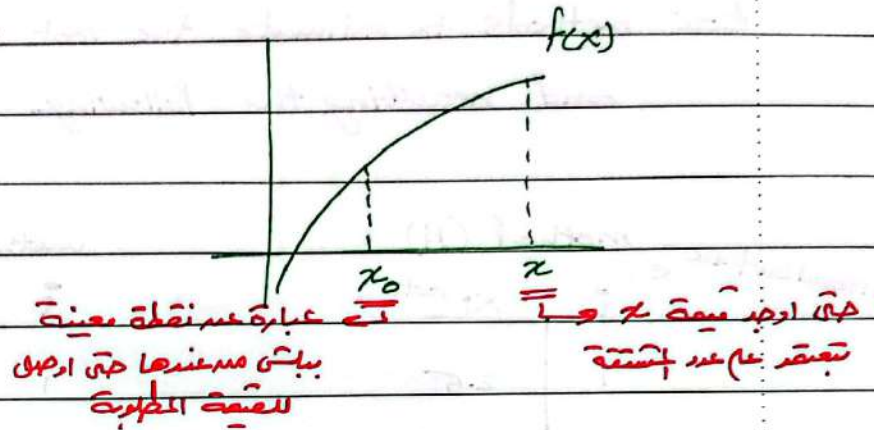 f(x)
x₀
x
عبارة عن نقطة معينة
ببلش من عندها حتى اوصل
للقيمة المطلوبة
حتى اوجد قيمة x
بتعتمد على عدد المشتقة